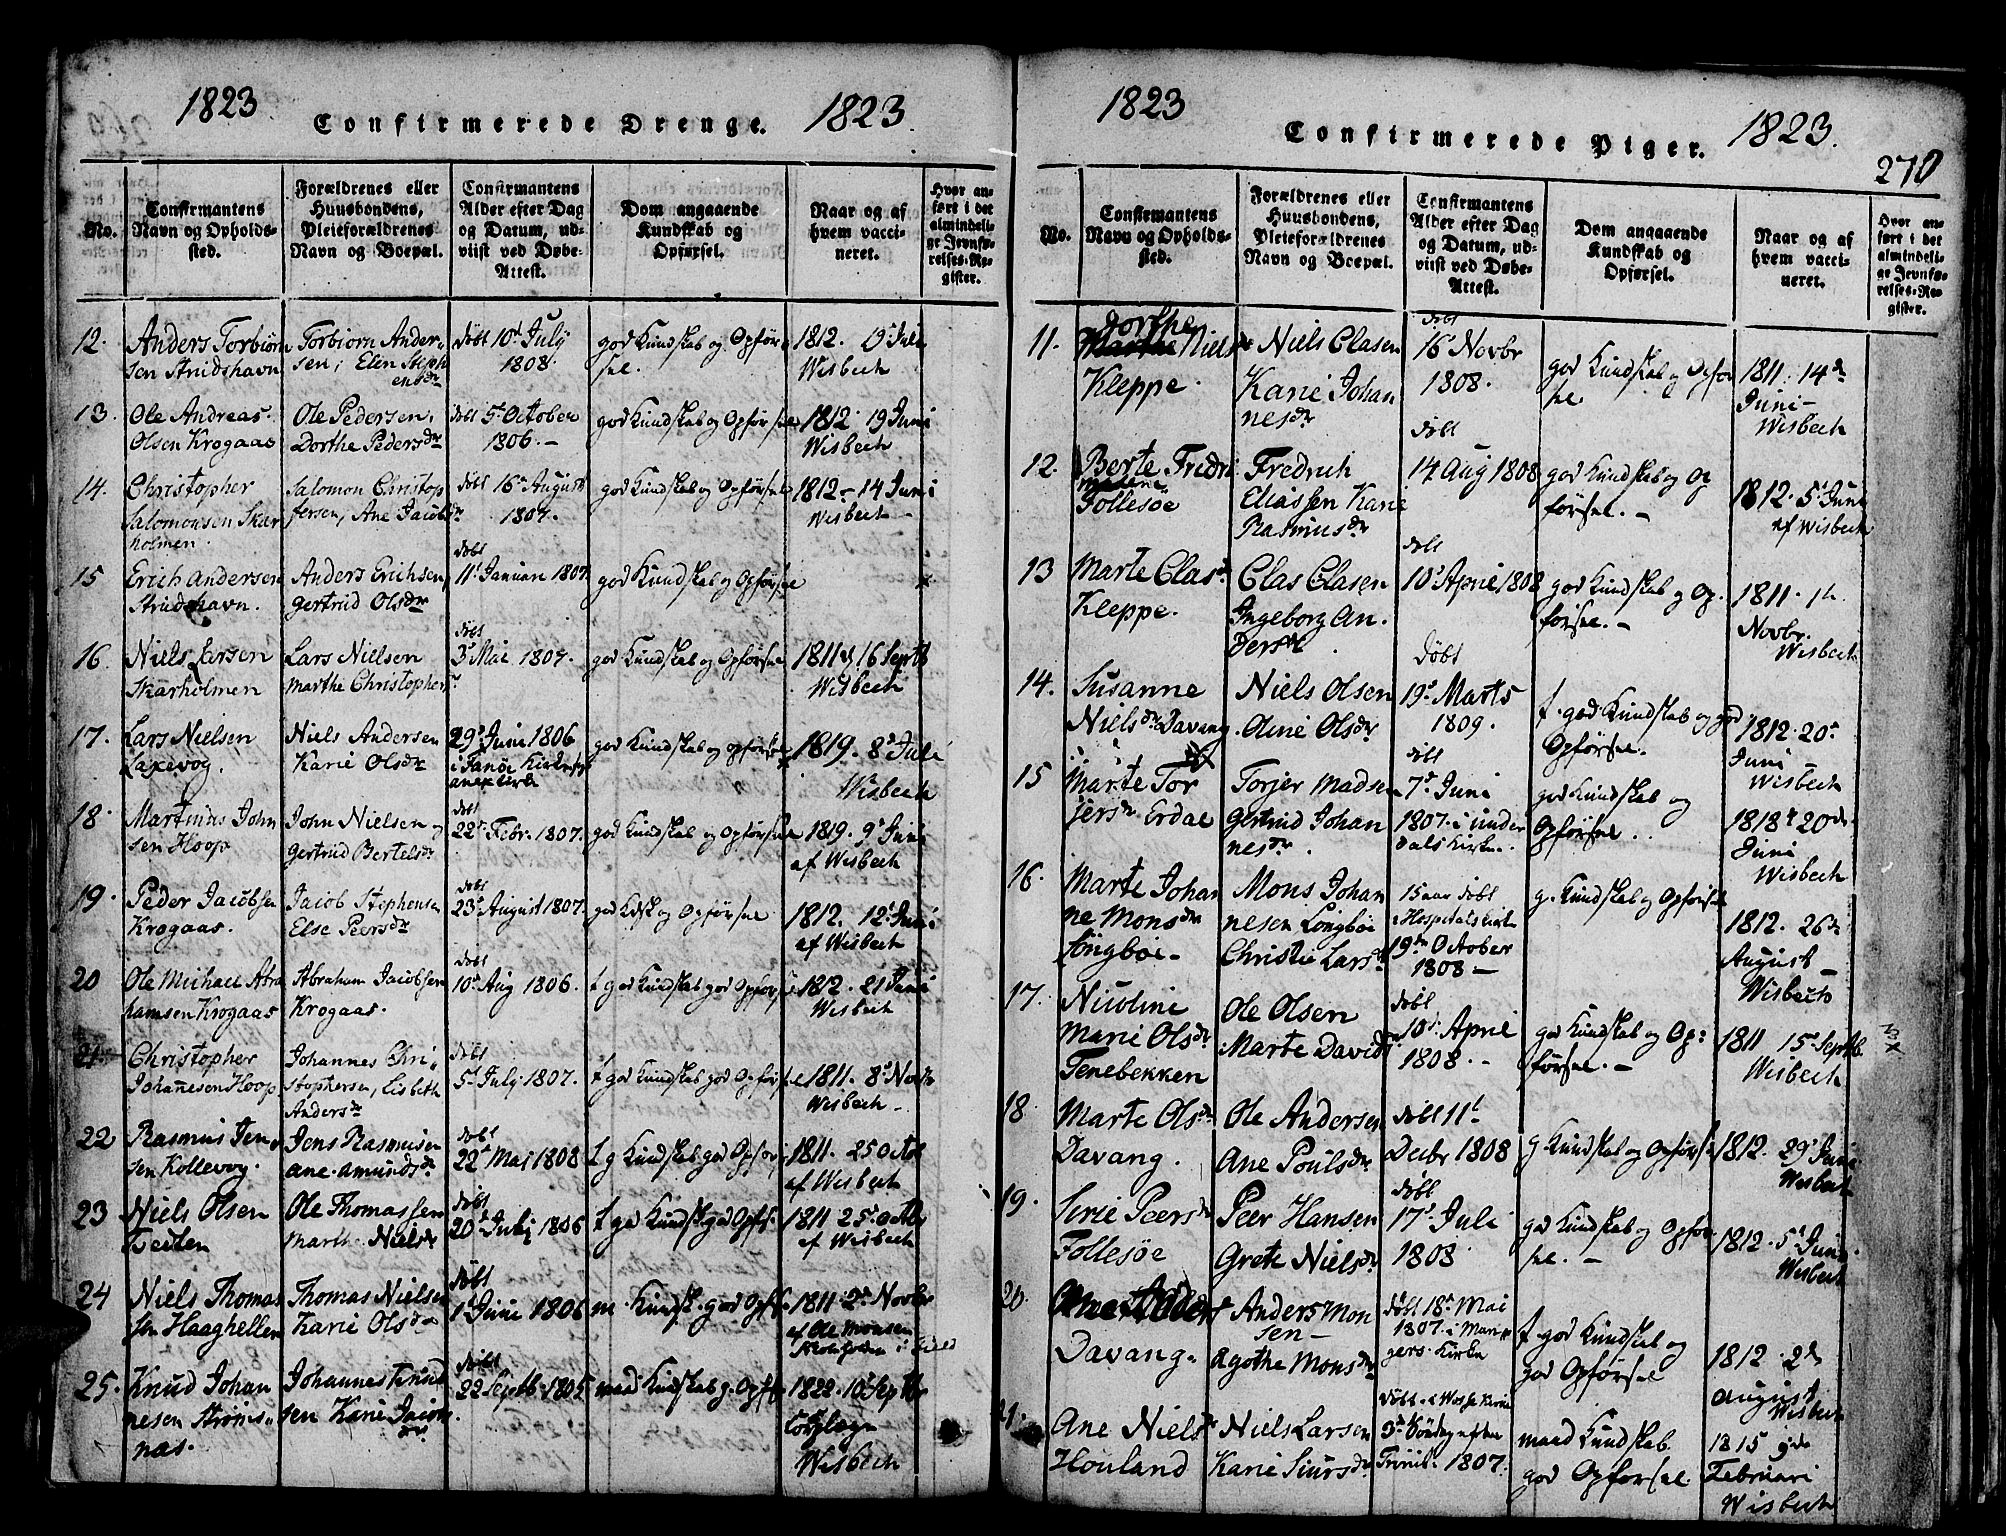 1823 Confirmerede Drenge. 1823.
No.
Confirmantens
Navn og Opholds-
sted.
Forældrenes eller
Huusbondens,
Pleieforældrenes
Navn og Boepæl.
Confirmantens
Alder efter Dag
og Datum, ud-
viist ved Døbe-
Attest.
Dom angaaende
Kundskab og
Opførsel.
Naar og af
hvem vacci-
neret.
Hvor an-
ført i det
almindeli-
ge Jevnfø-
relses-Re-
gister.
12.
Anders Torbiørn
sen Strudshavn
Torbiorn Ander
sen, Elen Steph
ensdr
döbt 10d July
1808.
god Kundskab og Opför
sel.
1812. 9d Juli
Wisbech
13.
Ole Andreas
Olsen Krogaas
Ole Pedersen.
Dorthe Pedersdr
döbt 5d October
1806.-
god Kundskab og Opførsel
1812 19 Juni
Wisbech
14.
Christopher
Salomonsen Skar
holmen.
Salomon Christop
fersen, Ane Jacobsdr
döbt 16d August
1807.
god Kundskab og Opførsel
1812- 14 Juni
Wisbech -
15
Erich Andersen
Strudshavn.
Anders Erichsen
Gertrud Olsdr
döbt
11t Januari 1807.
god Kundskab og Opførsel
16.
Niels Larsen
Skarholmen
Lars Nielsen
Marthe Christophersdr
döbt
3d Mai 1807.
god Kundskab og Opførsel
1811 d 16 Septb
Wisbech
17.
Lars Nielsen
Laxevog.
Niels Andersen
Karie Olsdr
29d Juni 1806
i Fanöe Kirke
anex kirke
god Kundskab og opførsel
1819. 8d Juli
Wisbech
18.
Martinus John
sen Hoop
John Nielsen
Gertrud Bertelsdr
döbt
22d Febr. 1807.
god Kundskab og Opførsel
1819. 9d Juni
af Wisbech
19.
Peder Jacobsen
Krogaas.
Jacob Stephensen
Else Peersdr
döbt
23d August 1807.
god Kdsk og Opførsel
1812. 12d Juni
af Wisbech
20
Ole Michael Abra
hamsen Krogaas
Abraham Jacobsen
Krogaas.
döbt
10d Aug 1806.
t god Kundskab god Opførsel
1812. 21 Juni
Wisbech
21.
Christopher
Johannesen Hoop
Johannes Chri
stophersen, Lisbeth
Andersdr
döbt
5d July 1807.
t god Kundskab god Opførsel
1811. 8d Novb
Wisbech -
22
Rasmus Jen
sen Kollevog.
Jens Rasmusen
ane amundsdr
döbt
22d Mai 1808
t g Kundskab god Opför
1811. 25 Octb
af Wisbech
23
Niels Olsen
Ole Thomassen
Marthe Nielsdr
döbt
20d July 1806
t god Kundsk god Opfs.
1811 25d Octb
af Wisbech
24
Niels Thomas
sen Haaghellen
Thomas Nielsen
Karie Olsdr
döbt
1d Juni 1806
m. Kundsk. god Opfs
1811. 2d Novbr
af Ole Monsen
25.
Knud Johan
nesen Ströms
næs.
Johannes Knud
sen Karie Jacobs
dr
döbt
22 Septb. 1805
maad Kundskab g. Opfs
1822. 10d Septbr
Wisbech
1823 Confirmerede Piger. 1823.
270
No.
Confirmantens
Navn og Opholds-
sted.
Forældrenes eller
Huusbondens,
Pleieforældrenes
Navn og Boepæl.
Confirmantens
Alder efter Dag
og Datum, ud-
viist ved Døbe-
Attest.
Dom angaaende
Kundskab og
Opførsel.
Naar og af
hvem vacci-
neret.
Hvor an-
ført i det
almindeli-
ge Jevnfø-
relses-Re-
gister.
11.
Dorthe
Marthe Nielsdr
Kleppe.
Niels Clasen
Karie Johan
nesdr
döbt
16d Novbr
1808.
god Kundskab og Opför
sel
1811. 14de
Juni-
Wisbech
12.
Berte Fredri
Follesöe
Fredrich
Eliassen Karie
Rasmusdr
döbt
14 Aug 1808
god Kundskab og Op
försel. -
1812. 5d Juni
af Wisbech
13
Marte Clasdr
Kleppe.
Clas Clasen
Ingeborg An.
dersdr.
döbt
10d April 1808
god Kundskab og Op.
försel. -
1811. 1te
Novbr.
Wisbech
14.
Susanne
Nielsdr Davang
Niels Olsen
Oline Olsdr
Döbt
19d Marts
1809.
t. god Kundskab og god
Opførsel.
1812. 20d
Juni -
Wisbech
15
Marte Tor
jersdr Erdal
Torjer Madsen
Gertrud Johan
nesdr.
döbt
7d Juni
1807. i under
dals Kirke.
god Kundskab og
Opførsel..
1818. 20de
Juni
Wisbech
16.
Marte Johan
ne Monsdr
Longböe-
Mons Johan
nesen Longböe
Christie Larsdr
15 aar döbt
i Hospitals kirke
19de October
1808 -
g. Kundskab og Opførsel
1812. 26de
August -
Wisbech
17.
Nicoline
Marie Olsdr
Tenebekken
Ole Olsen
Marte Davidsdr
döbt
10d. April
1808. -
god Kundskab og Op:
försel. -
1811 15d Septb.
Wisbech
18
Marte Olsdr
Davang.
Ole Andersen
Ane Poulsdr
döbt 11t
Decbr 1808
g Kundskab og Opførsel
1812. 29d Juni
Wisbech
19.
Serie Peersdr
Follesöe
Peer Hansen
Grete Nielsdr
döbt
17d Juli
1808
god Kundskab og Opför
sel. -
1812. 5d Juni
Wisbech
20.
Davang.
Anders Mon
sen -
Agothe Monsdr
döbt 18d Mai
1807. i Man
gers Kirke
t. god Kundskab og
god Opførsel
1812. 2de
August
Wisbech
21.
Ane Nielsdr
Houland
Niels Larsen
Karie Siursdr
Döbt i Wosse Kirke
3d Söndag efter
Trinit. 1807.
maad Kundskab
god Opførsel
1815 9de
Februari
Wisbech